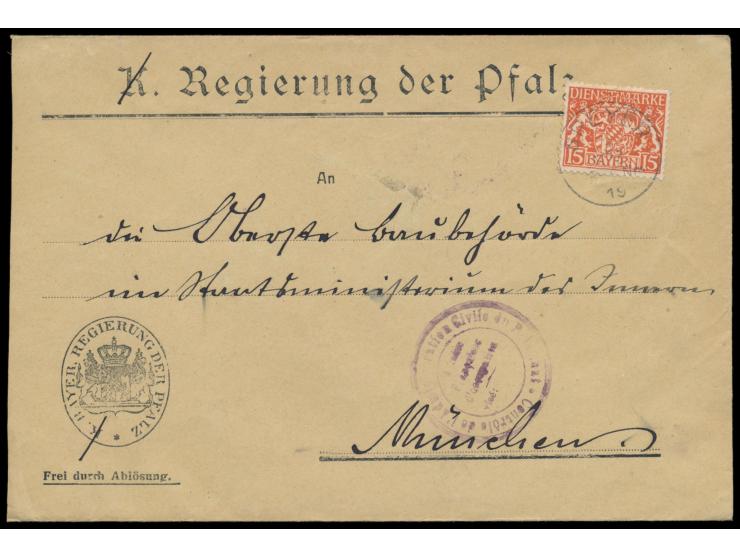 K. Regierung der Pfalz
DIENSTMARKE
15 BAYERN 15
19
An
die Oberste Baubehörde
im Staatsministerium des Innern
K. BAYER. REGIERUNG DER PFALZ *
Contrôle de l'Ad ration Civile du
München
Frei durch Ablösung.